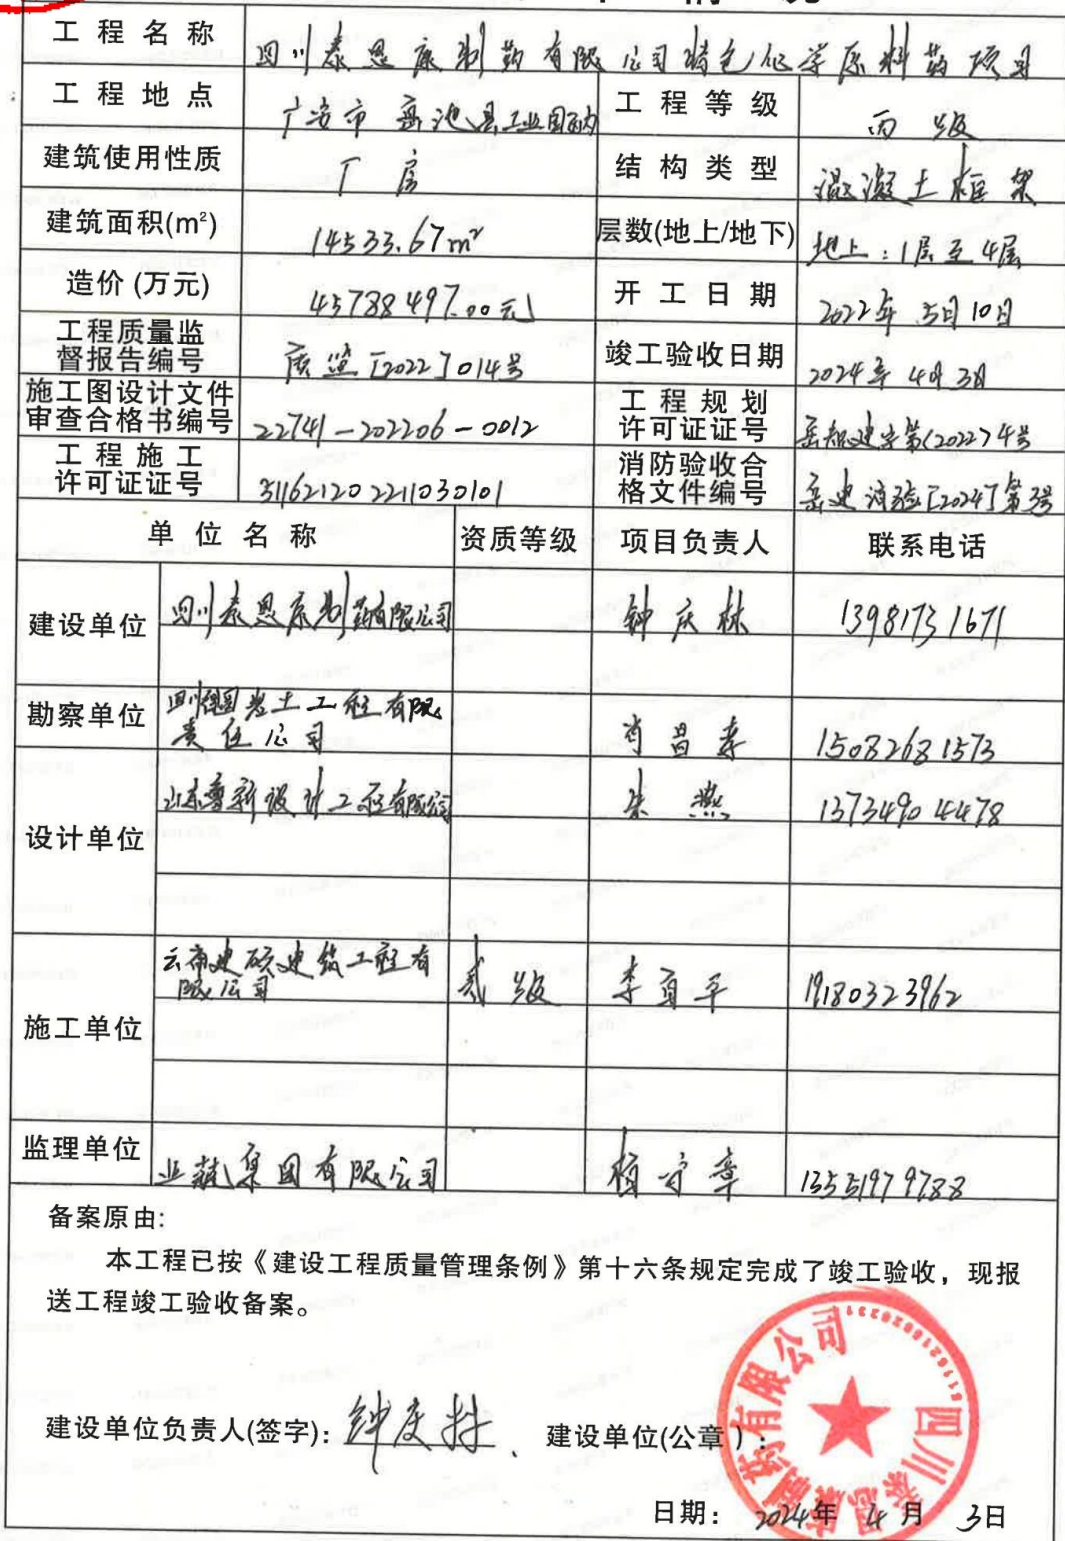 情 况
工程名称 四川泰恩康制药有限公司特色化学原料药项目
工程地点 广安市岳池县工业园内 工程等级 丙级
建筑使用性质 厂房 结构类型 混凝土框架
建筑面积(m²) 14533.67m² 层数(地上/地下) 地上:1层至4层
造价(万元) 45788497.00元 开工日期 2022年5月10日
工程质量监
督报告编号 质监[2022]014号 竣工验收日期 2024年4月3日
施工图设计文件
审查合格书编号 22741-202206-0012 工程规划
许可证证号 建字第(2022)4号
工程施工
许可证证号 511621202211030101 消防验收合
格文件编号 岳建消验[2024]第3号
单位名称 资质等级 项目负责人 联系电话
建设单位 四川泰恩康制药有限公司 钟庆林 13981731671
勘察单位 四川 岩土工程有限
责任公司 肖昌寿 15082681573
设计单位 山东鲁新设计工程有限公司 朱燕 13734904478
施工单位 云南建硕建筑工程有
限公司 贰级 李 平 19180323962
监理单位 集团有限公司 守章 13551979788
备案原由:
本工程已按《建设工程质量管理条例》第十六条规定完成了竣工验收，现报
送工程竣工验收备案。
建设单位负责人(签字): 钟庆林 建设单位(公章):
四川泰恩康制药有限公司
日期: 2024年4月3日